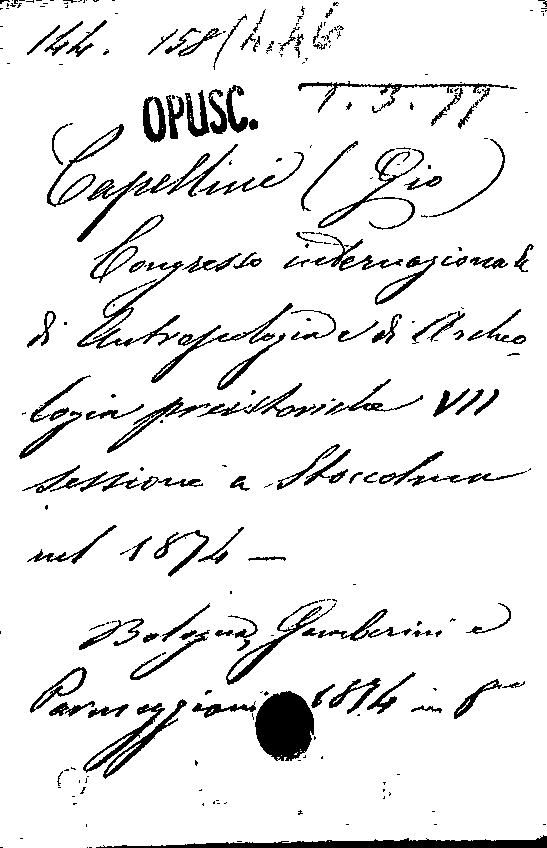 144. 158
OPUSC.
1.3.77
Capellini (Gio)
Congresso internazionale
di Antropologia e di Archeo
logia preistoriche VII
sessione a Stoccolma
nel 1874 —
Bologna, Gamberini e
Parmeggiani 1874 in 8vo